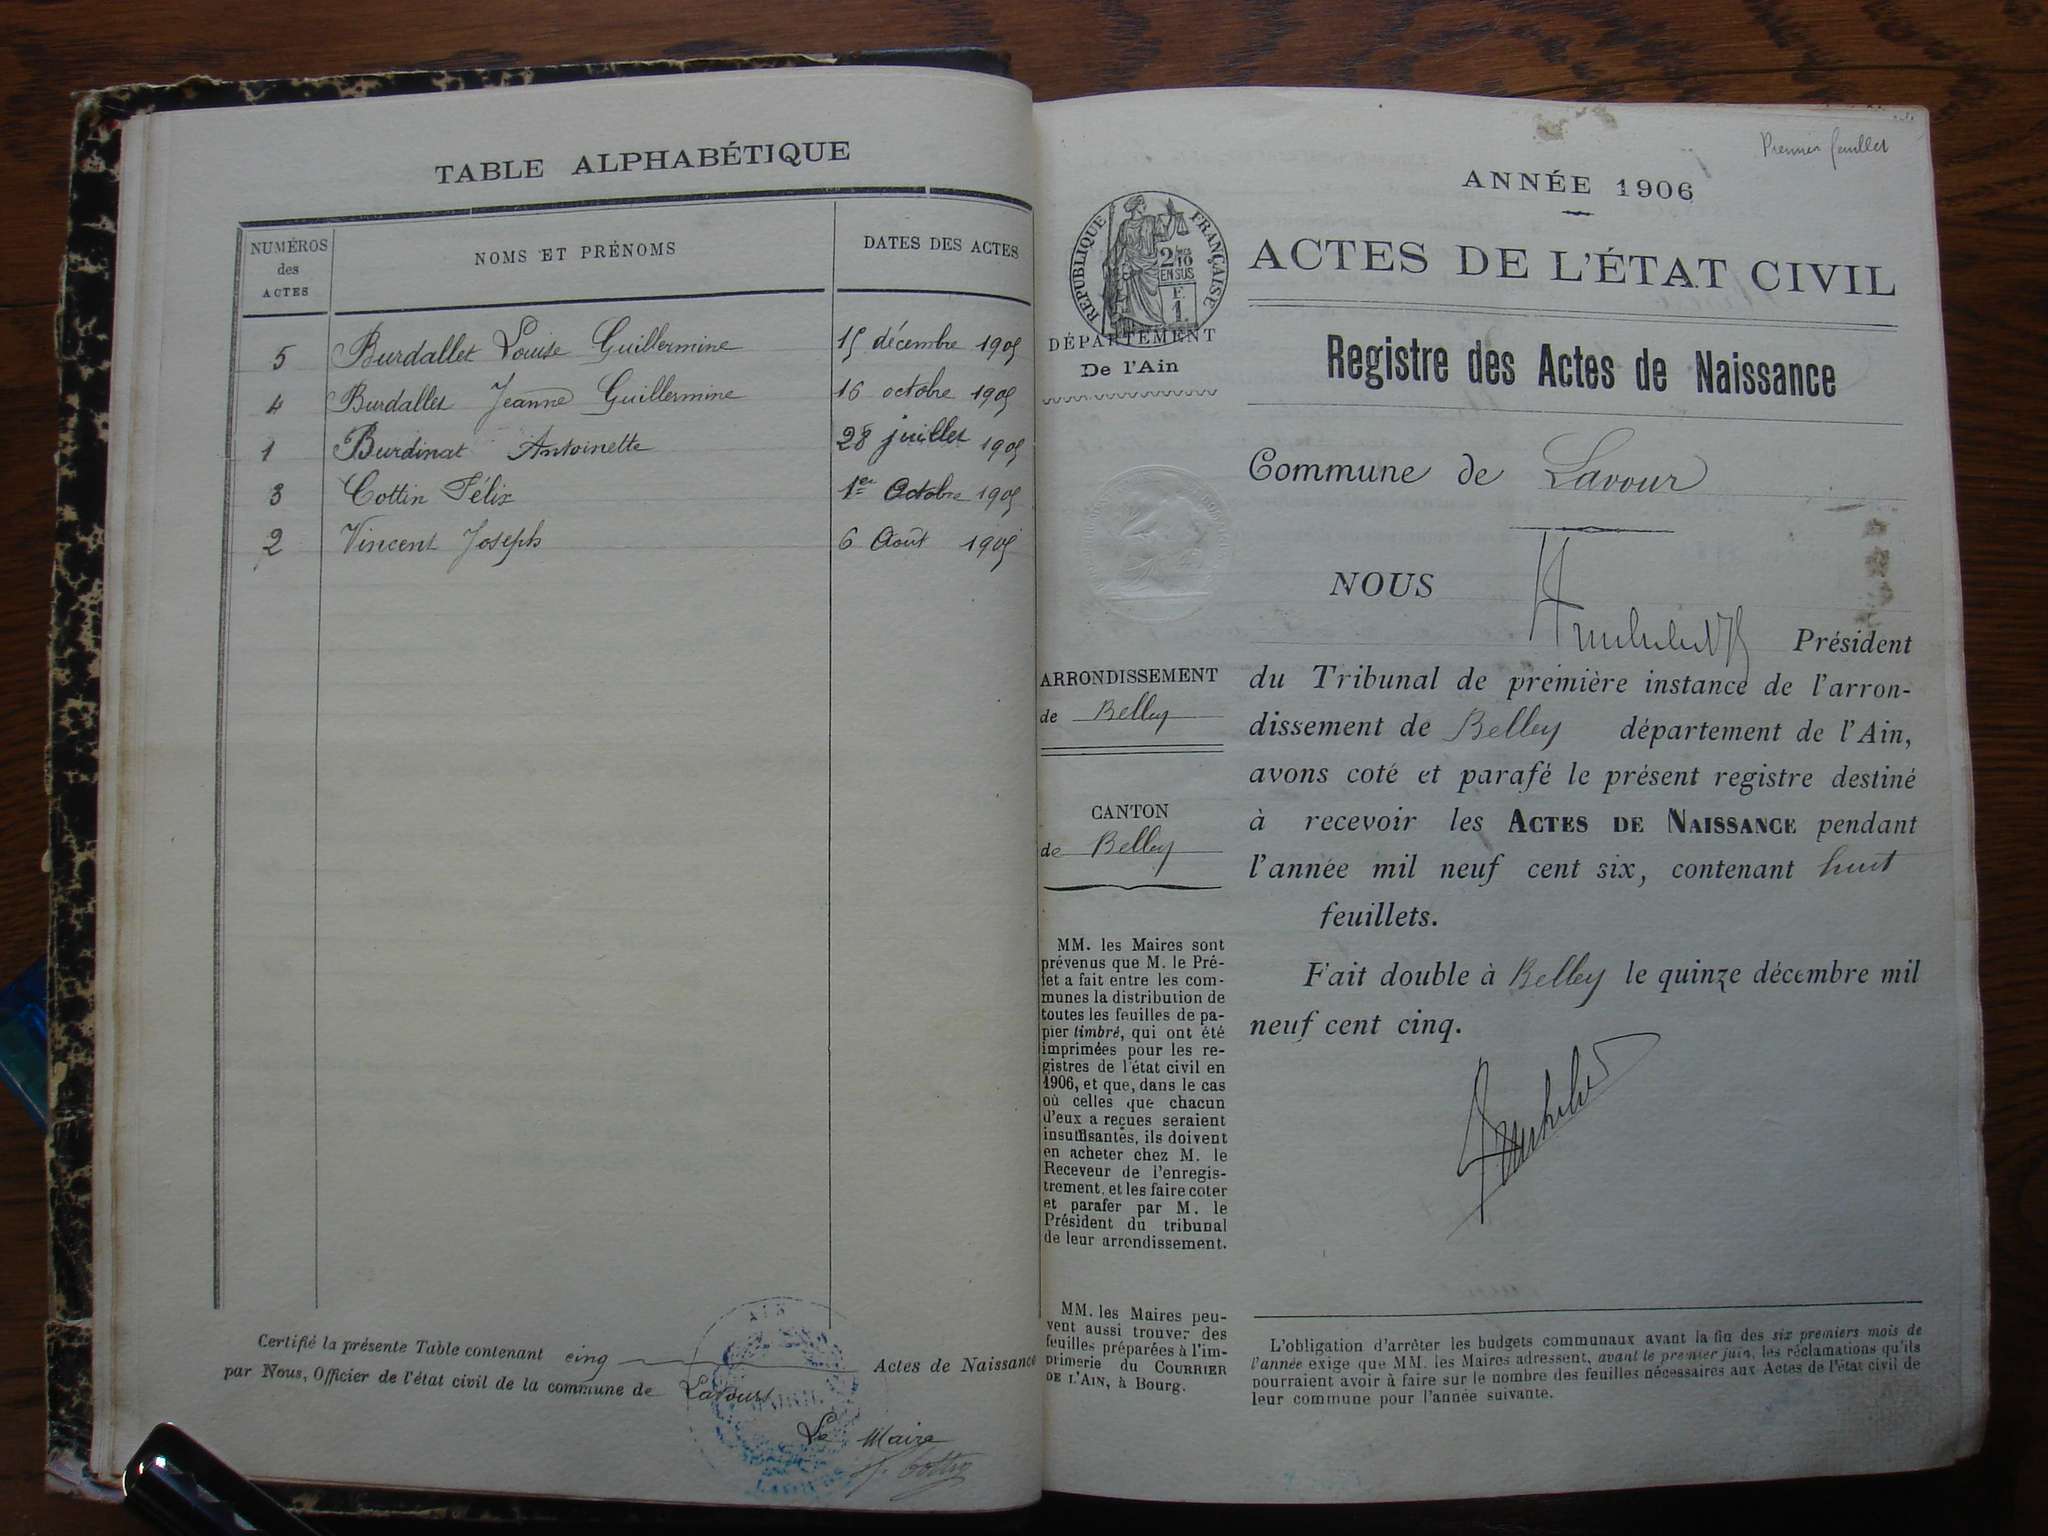 TABLE ALPHABÉTIQUE
NUMÉROS des ACTES
NOMS ET PRÉNOMS
DATES DES ACTES
5 Burdallet Louise Guillermine 15 décembre 1905
4 Burdallet Jeanne Guillermine 16 octobre 1905
1 Burdinat Antoinette 28 juillet 1905
3 Cottin Félix 1er Octobre 1905
2 Vincent Joseph 6 Août 1905
Certifié la présente Table contenant cinq Actes de Naissance
par Nous, Officier de l'état civil de la commune de Lavours
Le Maire
AIN
Premier feuillet
ANNÉE 1906
RÉPUBLIQUE FRANÇAISE
2/10
EN SUS
F.
1.
ACTES DE L'ÉTAT CIVIL
DÉPARTEMENT
De l'Ain
Registre des Actes de Naissance
Commune de Lavour
NOUS
Président
du Tribunal de première instance de l'arron-
dissement de Belley département de l'Ain,
avons coté et parafé le présent registre destiné
à recevoir les ACTES DE NAISSANCE pendant
l'année mil neuf cent six, contenant huit
feuillets.
Fait double à Belley le quinze décembre mil
neuf cent cinq.
ARRONDISSEMENT
de Belley
CANTON
de Belley
MM. les Maires sont
prévenus que M. le Pré-
fet a fait entre les com-
munes la distribution de
toutes les feuilles de pa-
pier timbré, qui ont été
imprimées pour les re-
gistres de l'état civil en
1906, et que, dans le cas
où celles que chacun
d'eux a reçues seraient
insuffisantes, ils doivent
en acheter chez M. le
Receveur de l'enregis-
trement, et les faire coter
et parafer par M. le
Président du tribunal
de leur arrondissement.
MM. les Maires peu-
vent aussi trouver des
feuilles préparées à l'im-
primerie du COURRIER
DE L'AIN, à Bourg.
L'obligation d'arrêter les budgets communaux avant la fin des six premiers mois de
l'année exige que MM. les Maires adressent, avant le premier juin, les réclamations qu'ils
pourraient avoir à faire sur le nombre des feuilles nécessaires aux Actes de l'état civil de
leur commune pour l'année suivante.